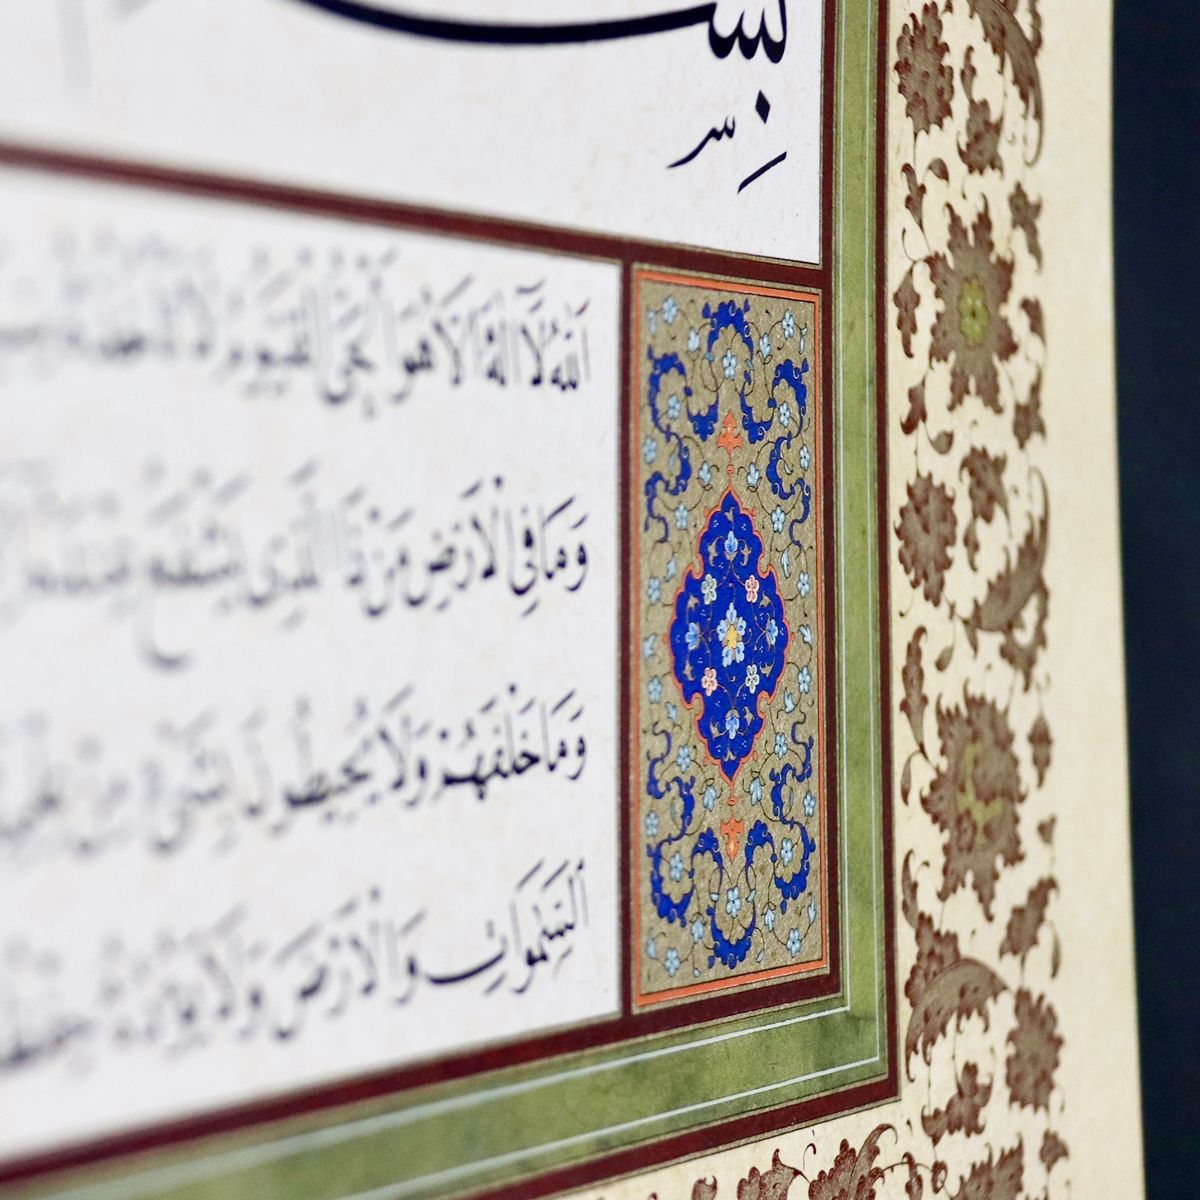 بِسْ
اَللّٰهُ لَٓا اِلٰهَ اِلَّا هُوَ اَلْحَيُّ الْقَيُّومُ لَا تَأْخُذُهُ
وَمَا فِي الْاَرْضِ مَنْ ذَا الَّذِي يَشْفَعُ عِنْدَهُ
وَمَا خَلْفَهُمْ وَلَا يُحِيطُونَ بِشَيْءٍ مِنْ
اَلسَّمٰوَاتِ وَالْاَرْضَ وَلَا يَؤُدُهُ